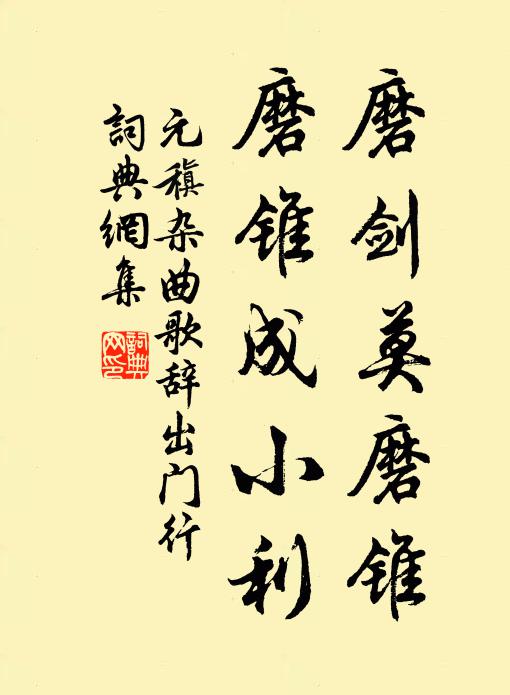 磨剑莫磨锥
磨锥成小利
元稹杂曲歌辞出门行
詞典網集
詞典网印